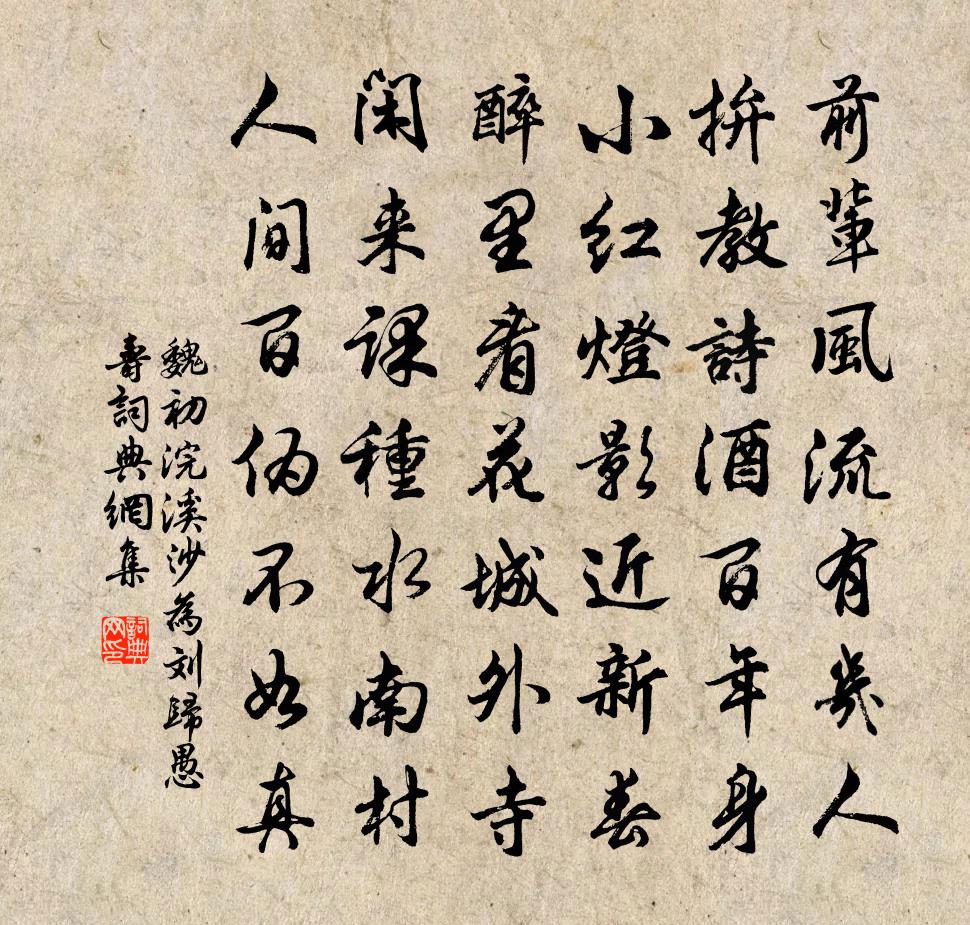 前輩風流有幾人
拚教詩酒百年身
小红燈影近新春
醉里看花城外寺
闲来課種水南村
人间百伪不如真
魏初浣溪沙為刘歸愚
壽詞典網集
詞典
网印